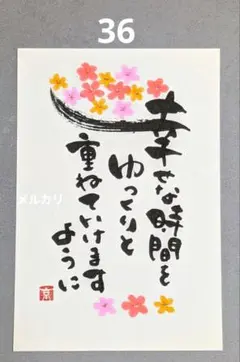 36
幸せな時間を
ゆっくりと
重ねていけます
ように
メルカリ
京